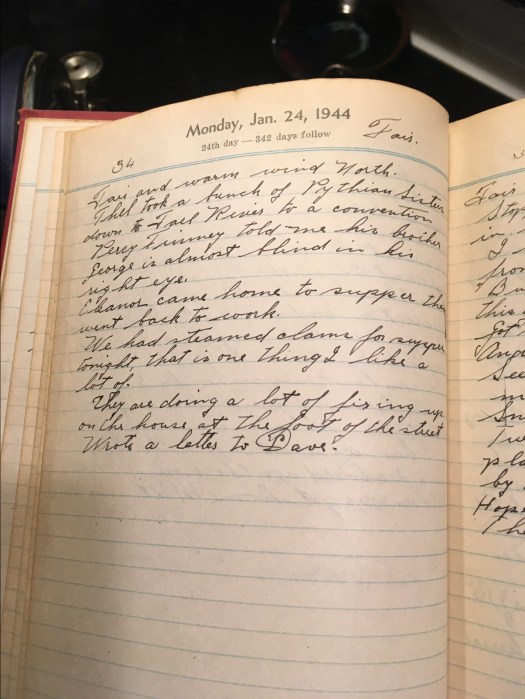 Monday, Jan. 24, 1944
24th day — 342 days follow
Fair.
34
Fair and warm wind North.
Thel took a bunch of Pythian Sisters
down to Fall River to a convention
Percy Finney told me his brother
George is almost blind in his
right eye.
Eleanor came home to supper then
went back to work.
We had steamed clams for supper
tonight, that is one thing I like a
lot of.
They are doing a lot of fixing up
on the house at the foot of the street
Wrote a letter to Dave.
3
Fair
Stop
in.
I
from
Bu
this
Got
And
See
m
Sn
Tue
pla
by
Hope
The